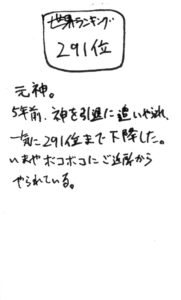 世界ランキング
291位
元神。
5年前、神を引退に追いやられ、
一気に291位まで下降した。
いまやボコボコにご近所から
やられている。